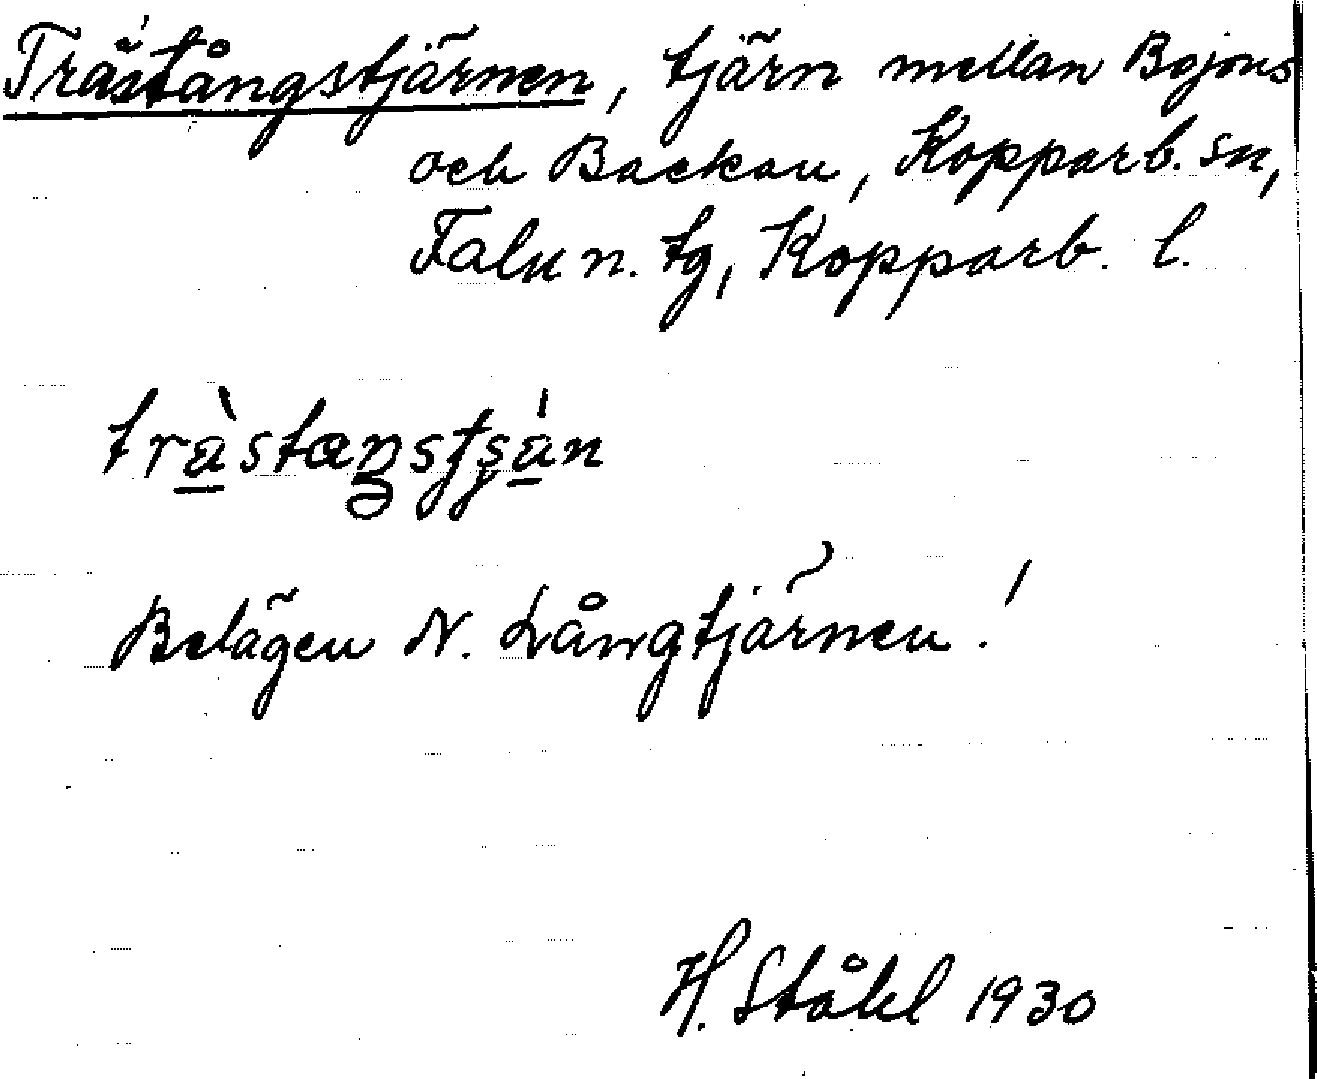 Trästångstjärnen, tjärn mellan Bojons
och Backau, Kopparb. sn,
Falun. tg, Kopparb. l.
Belägen N. Långtjärnen!
H. Ståhl 1930